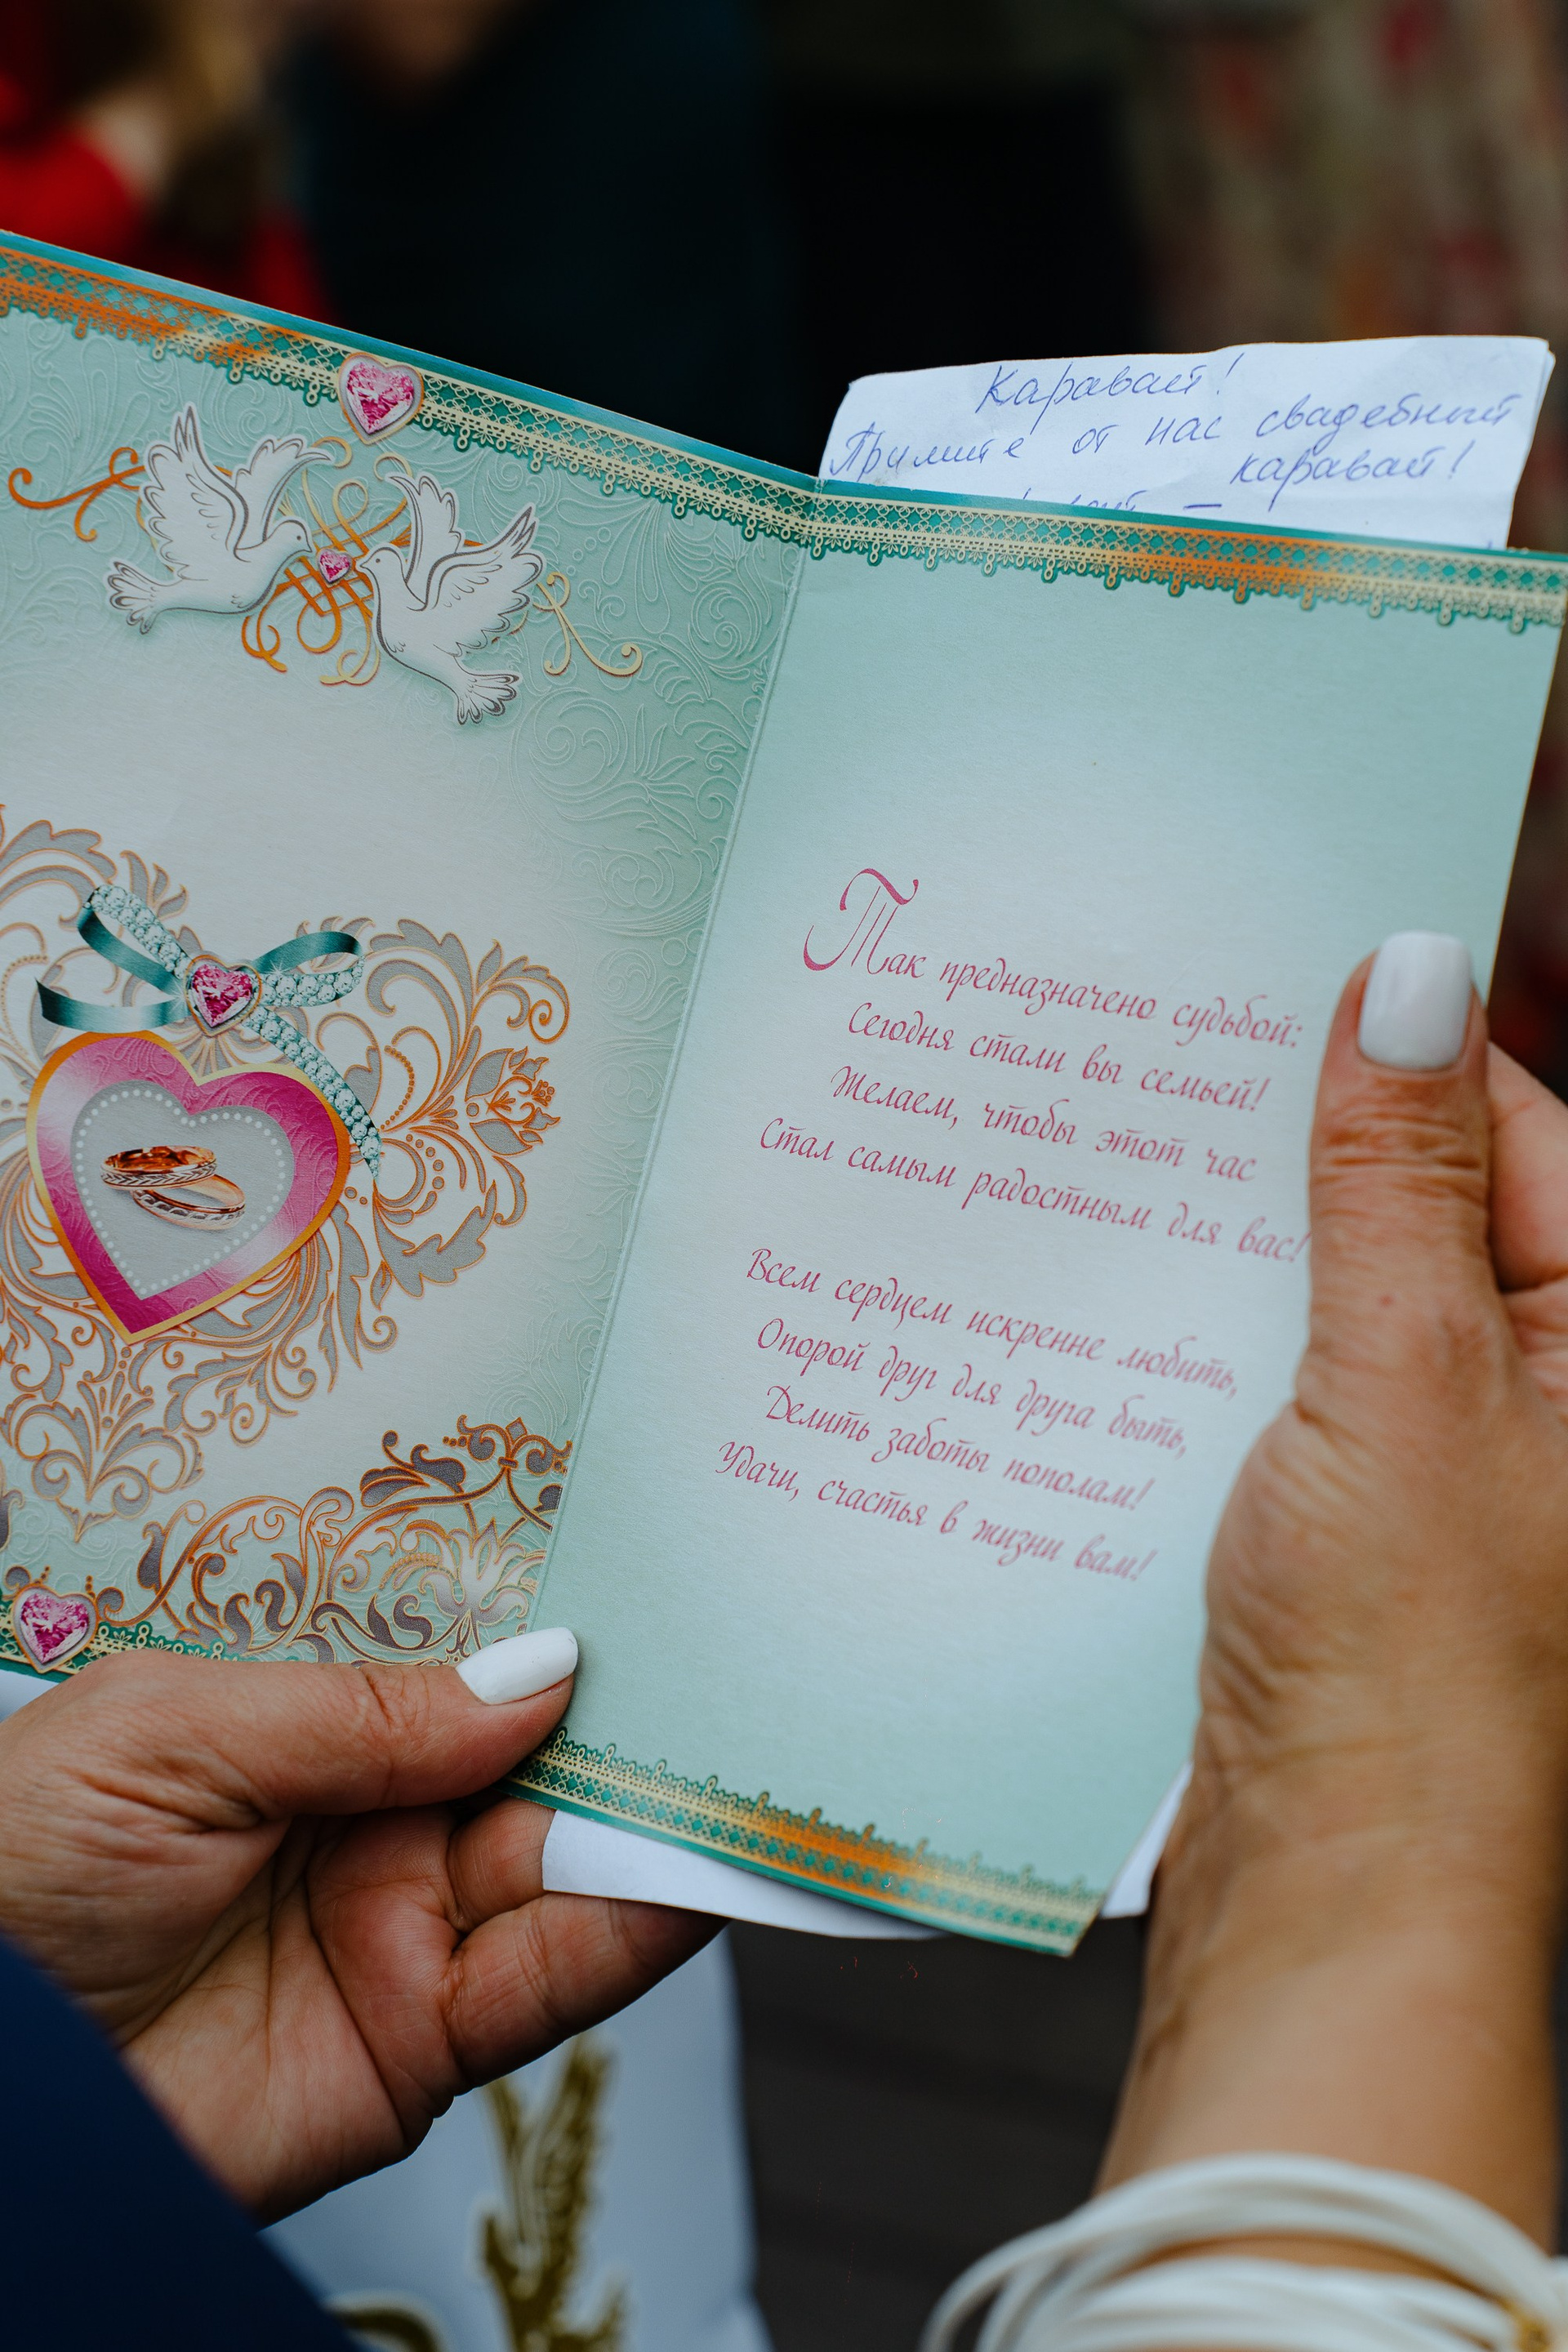 Каравай!
Примите от нас свадебный
каравай!
—
Так предназначено судьбой:
Сегодня стали вы семьей!
Желаем, чтобы этот час
Стал самым радостным для вас!
Всем сердцем искренне любить,
Опорой друг для друга быть,
Делить заботы пополам!
Удачи, счастья в жизни вам!